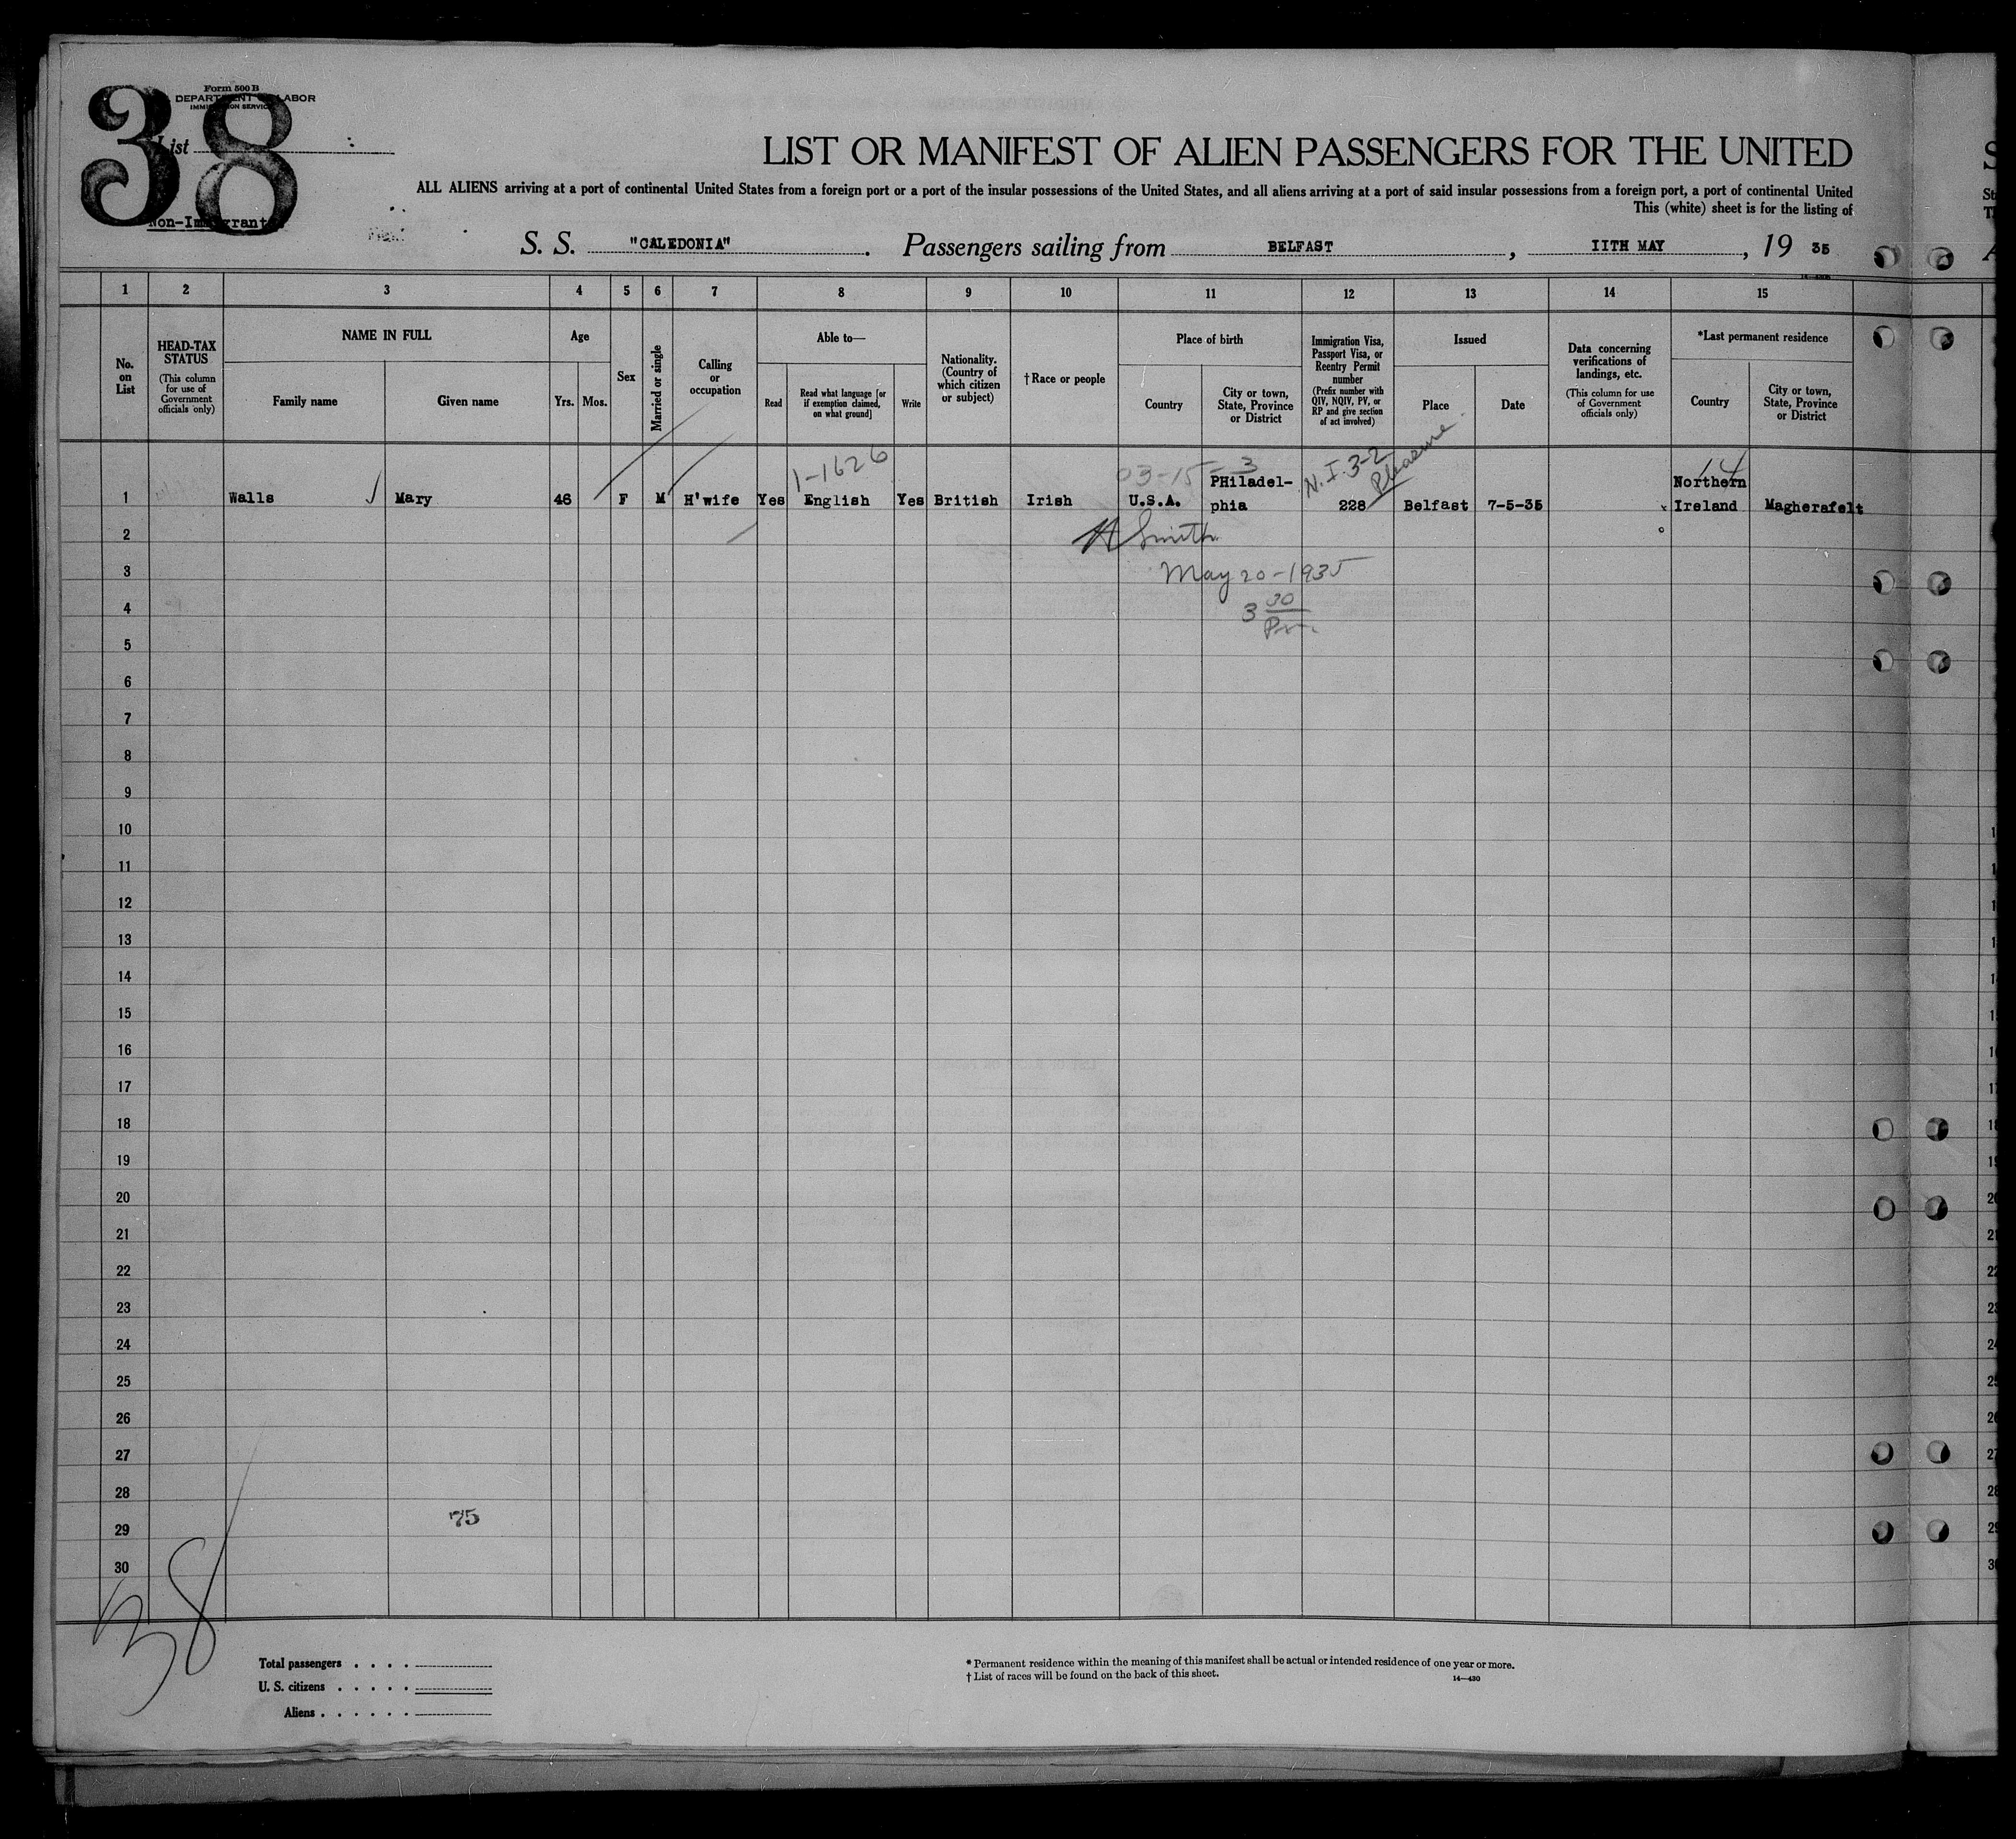 38
Form 500 B
DEPARTMENT OF LABOR
IMMIGRATION SERVICE
List
Non-Immigrant
LIST OR MANIFEST OF ALIEN PASSENGERS FOR THE UNITED
ALL ALIENS arriving at a port of continental United States from a foreign port or a port of the insular possessions of the United States, and all aliens arriving at a port of said insular possessions from a foreign port, a port of continental United
This (white) sheet is for the listing of
S. S. "CALEDONIA". Passengers sailing from BELFAST, IITH MAY, 19 35
1 2 3 4 5 6 7 8 9 10 11 12 13 14 15
No. on List
HEAD-TAX STATUS
(This column for use of Government officials only)
NAME IN FULL
Family name
Given name
Age
Yrs. Mos.
Sex
Married or single
Calling or occupation
Able to—
Read
Read what language [or if exemption claimed, on what ground]
Write
Nationality. (Country of which citizen or subject)
† Race or people
Place of birth
Country
City or town, State, Province or District
Immigration Visa, Passport Visa, or Reentry Permit number
(Prefix number with QIV, NQIV, PV, or RP and give section of act involved)
Issued
Place
Date
Data concerning verifications of landings, etc.
(This column for use of Government officials only)
*Last permanent residence
Country
City or town, State, Province or District
1-1626
03-15-3
N.I. 3-2
Pleasure
PHiladel-
Northern
1 Walls Mary 46 F M H'wife Yes English Yes British Irish U.S.A. phia 228 Belfast 7-5-35 Ireland Magherafelt
2
H Smith
3
May 20-1935
4
3 30
Pm
5
6
7
8
9
10
11
12
13
14
15
16
17
18
19
20
21
22
23
24
25
26
27
28
75
29
30
38
Total passengers . . . .
U. S. citizens . . . . .
Aliens . . . . . .
* Permanent residence within the meaning of this manifest shall be actual or intended residence of one year or more.
† List of races will be found on the back of this sheet.
14—430